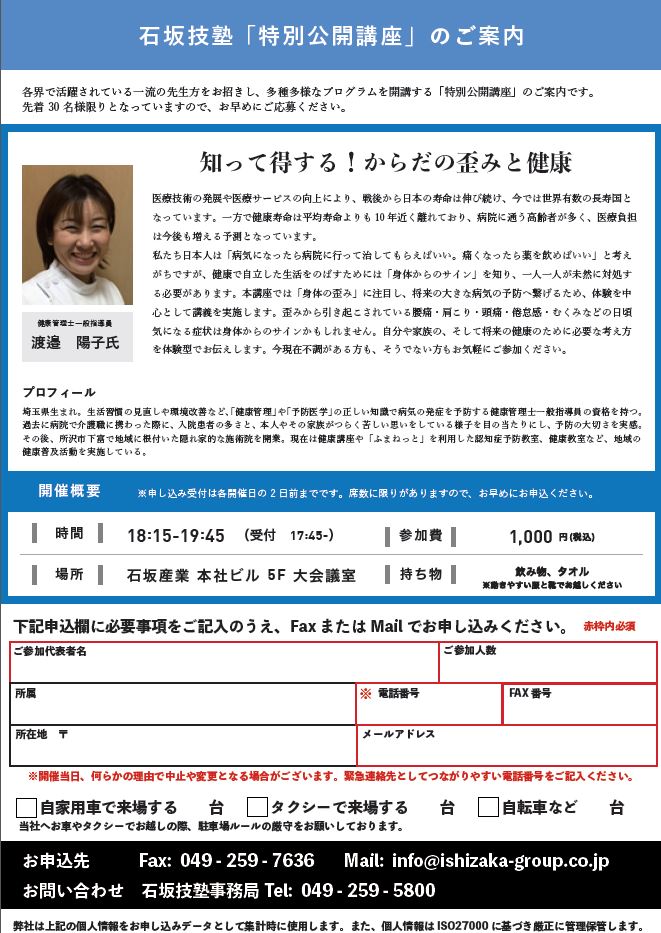 石坂技塾「特別公開講座」のご案内
各界で活躍されている一流の先生方をお招きし、多種多様なプログラムを開講する「特別公開講座」のご案内です。
先着 30 名様限りとなっていますので、お早めにご応募ください。
知って得する！からだの歪みと健康
医療技術の発展や医療サービスの向上により、戦後から日本の寿命は伸び続け、今では世界有数の長寿国と
なっています。一方で健康寿命は平均寿命よりも 10 年近く離れており、病院に通う高齢者が多く、医療負担
は今後も増える予測となっています。
私たち日本人は「病気になったら病院に行って治してもらえばいい。痛くなったら薬を飲めばいい」と考え
がちですが、健康で自立した生活をのばすためには「身体からのサイン」を知り、一人一人が未然に対処す
る必要があります。本講座では「身体の歪み」に注目し、将来の大きな病気の予防へ繋げるため、体験を中
心として講義を実施します。歪みから引き起こされている腰痛・肩こり・頭痛・倦怠感・むくみなどの日頃
気になる症状は身体からのサインかもしれません。自分や家族の、そして将来の健康のために必要な考え方
を体験型でお伝えします。今現在不調がある方も、そうでない方もお気軽にご参加ください。
健康管理士一般指導員
渡邉　陽子氏
プロフィール
埼玉県生まれ。生活習慣の見直しや環境改善など、「健康管理」や「予防医学」の正しい知識で病気の発症を予防する健康管理士一般指導員の資格を持つ。
過去に病院で介護職に携わった際に、入院患者の多さと、本人やその家族がつらく苦しい思いをしている様子を目の当たりにし、予防の大切さを実感。
その後、所沢市下富で地域に根付いた隠れ家的な施術院を開業。現在は健康講座や「ふまねっと」を利用した認知症予防教室、健康教室など、地域の
健康普及活動を実施している。
開催概要　※申し込み受付は各開催日の 2 日前までです。席数に限りがありますので、お早めにお申込ください。
時間　18:15-19:45　（受付　17:45-）　参加費　1,000 円(税込)
場所　石坂産業 本社ビル 5F 大会議室　持ち物　飲み物、タオル
※動きやすい服と靴でお越しください
下記申込欄に必要事項をご記入のうえ、Fax または Mail でお申し込みください。　赤枠内必須
ご参加代表者名　ご参加人数
所属　※ 電話番号　FAX 番号
所在地　〒　メールアドレス
※開催当日、何らかの理由で中止や変更となる場合がございます。緊急連絡先としてつながりやすい電話番号をご記入ください。
自家用車で来場する　台　タクシーで来場する　台　自転車など　台
当社へお車やタクシーでお越しの際、駐車場ルールの厳守をお願いしております。
お申込先　Fax: 049 - 259 - 7636　Mail: info@ishizaka-group.co.jp
お問い合わせ　石坂技塾事務局 Tel: 049 - 259 - 5800
弊社は上記の個人情報をお申し込みデータとして集計時に使用します。また、個人情報は ISO27000 に基づき厳正に管理保管します。